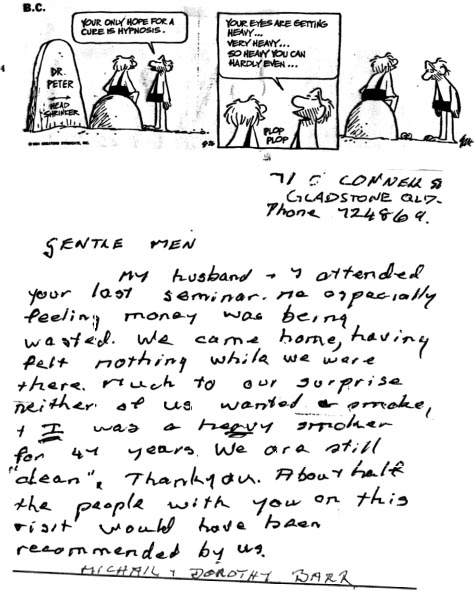 B.C.
YOUR ONLY HOPE FOR A
CURE IS HYPNOSIS.
DR.
PETER
HEAD
SHRINKER
YOUR EYES ARE GETTING
HEAVY...
VERY HEAVY...
SO HEAVY YOU CAN
HARDLY EVEN...
PLOP
PLOP
CREATORS SYNDICATE, INC.
CONNER
GLADSTONE QLD.
Phone 724869.
GENTLE MEN
My husband + I attended
your last seminar. Me especially
feeling money was being
wasted. We came home, having
felt nothing while we were
there. Much to our surprise
neither of us wanted a smoke,
+ I was a heavy smoker
for 47 years. We are still
"clean". Thankyou. About half
the people with you on this
visit would have been
recommended by us.
MICHAIL + DOROTHY BARR